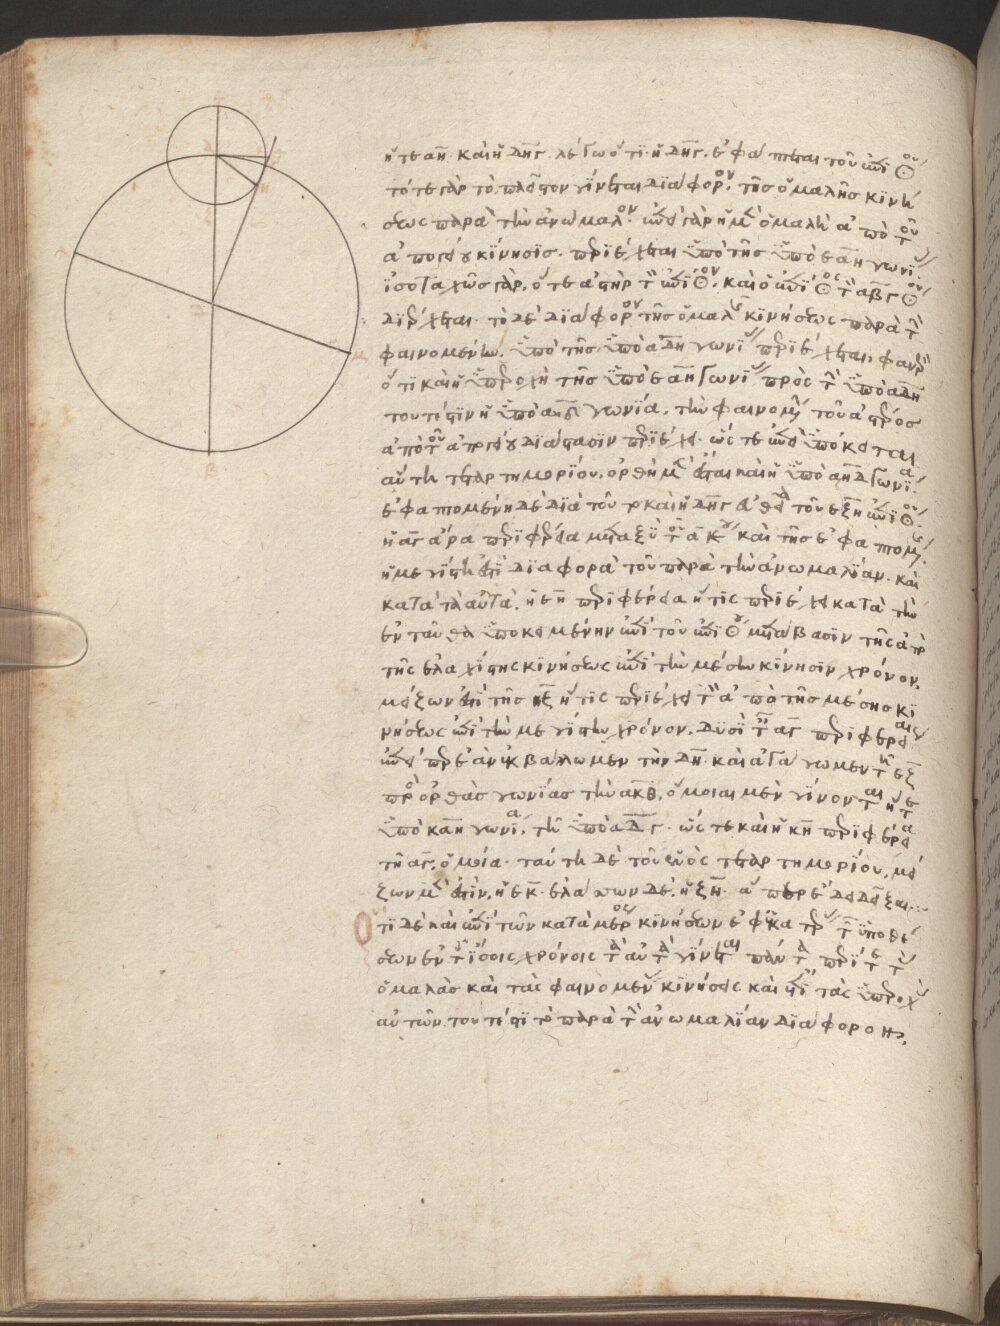 ἥ τε ΔΗ καὶ ἡ ΔΗΓ. λέγω ὅτι ἡ ΔΗΓ ἐφάπτεται τοῦ ἐπι
τότε γὰρ τὸ πλεῖστον γίνεται διάφορον τῆς ὁμαλῆς κινή
σεως παρὰ τὴν ἀνώμαλον. ἐπεὶ γὰρ ἡ μὲν ὁμαλὴ ἀπὸ τοῦ
ἀπογείου κίνησις περιέχεται ὑπὸ τῆς ὑπὸ ΕΔΗ γωνίας
ἰσοταχῶς γὰρ ὅ τε ἀστὴρ τὸν ἐπι καὶ ὁ ἐπι τὸν ΑΒΓ
διέρχεται τὸ δὲ διάφορον τῆς ὁμαλῆς κινήσεως παρὰ τὴν
φαινομένην ὑπὸ τῆς ὑπὸ ΑΔΗ γωνίας περιέχεται, φανερὸν
ὅτι καὶ ἡ ὑπεροχὴ τῆς ὑπὸ ΕΑΗ γωνίας πρὸς τὴν ὑπὸ ΑΔΗ
τουτέστιν ἡ ὑπὸ ΑΗΔ γωνία, τὴν φαινομένην τοῦ ἀστέρος
ἀπὸ τοῦ ἀπογείου διάστασιν περιέχει. ὥστε ἐπεὶ ὑπόκειται
αὕτη τεταρτημορίου, ὀρθὴ μὲν ἔσται καὶ ἡ ὑπὸ ΑΗΔ γωνία
ἐφαπτομένη δὲ διὰ τοῦτο καὶ ἡ ΔΗΓ εὐθεῖα τοῦ ΕΖΗ ἐπι
ἡ ΑΓ ἄρα περιφέρεια μεταξὺ τοῦ Α καὶ τῆς ἐφαπτομένης
ἡ μεγίστη ἐστὶ διαφορὰ τοῦ παρὰ τὴν ἀνωμαλίαν. καὶ
κατὰ τὰ αὐτά, ἡ ΕΗ περιφέρεια ἥτις περιέχει κατὰ τὴν
ἐνταῦθα ὑποκειμένην ἐπὶ τοῦ ἐπι μετάβασιν τῆς ἀπὸ
τῆς ἐλαχίστης κινήσεως ἐπὶ τὴν μέσην κίνησιν χρόνον,
μείζων ἐστὶ τῆς ΗΖ ἥτις περιέχει τὸν ἀπὸ τῆς μέσης κι
νήσεως ἐπὶ τὴν μεγίστην χρόνον, δυσὶ ταῖς ΑΓ περιφερείαις
ἐπειδήπερ ἐὰν ἐκβάλωμεν τὴν ΔΗ καὶ ἀγάγωμεν τῇ ΕΖ
πρὸς ὀρθὰς γωνίας τὴν ΑΚΘ, ὅμοιαι μὲν γίνονται ἥ τε
ὑπὸ ΚΑΗ γωνία, τῇ ὑπὸ ΑΔΓ. ὥστε καὶ ἡ ΚΗ περιφέρεια
τῇ ΑΓ, ὁμοία. ταύτῃ δὲ τοῦ ἑνὸς τεταρτημορίου, μεί
ζων μέν ἐστιν, ἡ ΕΚ. ἐλάττων δέ, ἡ ΖΗ. ἅπερ ἔδει δεῖξαι.
Ὅτι δὲ καὶ ἐπὶ τῶν κατὰ μέρος κινήσεων ἐφ' ἑκατέρας τῶν ὑποθέ
σεων ἐν τοῖς ἴσοις χρόνοις τὰ αὐτὰ γίνεται πάντα περί τε τὰς
ὁμαλὰς καὶ τὰς φαινομένας κινήσεις καὶ ἔτι τὰς ὑπεροχὰς
αὐτῶν. τουτέστι τὸ παρὰ τὴν ἀνωμαλίαν διάφορον,